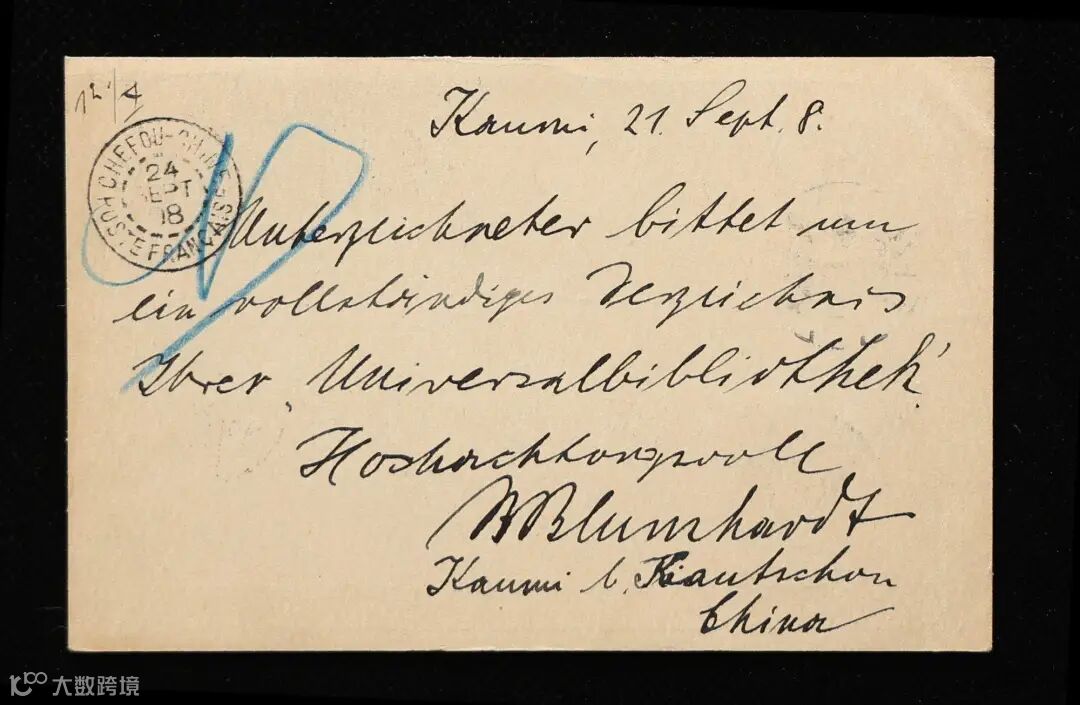 Kaumi, 21. Sept. 8.
CHEFOU-CHINE
24
SEPT
08
POSTE FRANÇAISE
Unterzeichneter bittet um
ein vollständiges Verzeichnis
Ihrer „Universalbibliothek“.
Hochachtungsvoll
Blumhardt
Kaumi b. Kiautschou
China
大数跨境